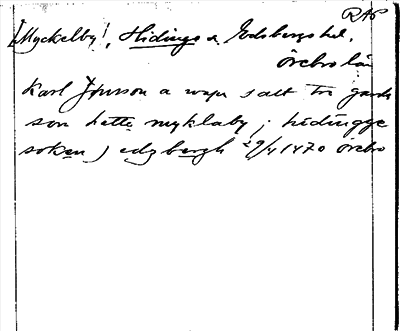 RAP
[Myckelby], Hidinge sn, Edsbergs hd,
Örebro län
Karl Jonsson a wapn salt tre garda
som hette myklaby j hidingge
soken j edzbergh 29/4 1470 Örebro